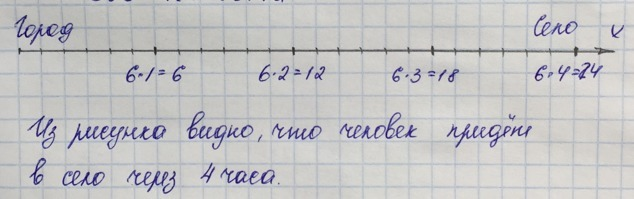 Город Село x
6·1=6 6·2=12 6·3=18 6·4=24
Из рисунка видно, что человек придёт
в село через 4 часа.